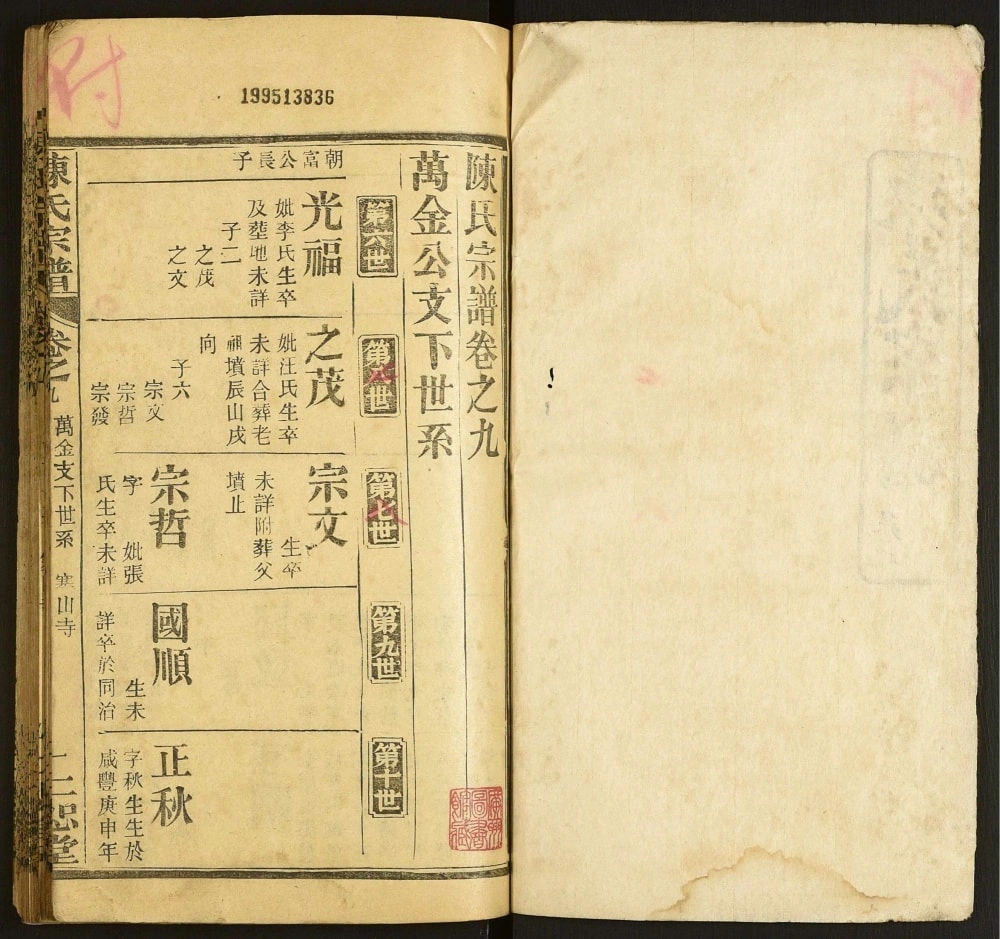 199513836
陳氏宗譜卷之九
萬金公支下世系
第六世
第世
第七世
第九世
第十世
朝富公長子
光福
妣李氏生卒
及塟地未詳
子二
之茂
之文
之茂
妣汪氏生卒
未詳合葬老
祖墳辰山戌
向
子六
宗文
宗哲
宗發
宗文
生卒
未詳附葬父
墳止
宗哲
字 妣張
氏生卒未詳
國順
生未
詳卒於同治
正秋
字秋生生於
咸豐庚申年
陳氏宗譜
卷之九
萬金支下世系
寒山寺
堂